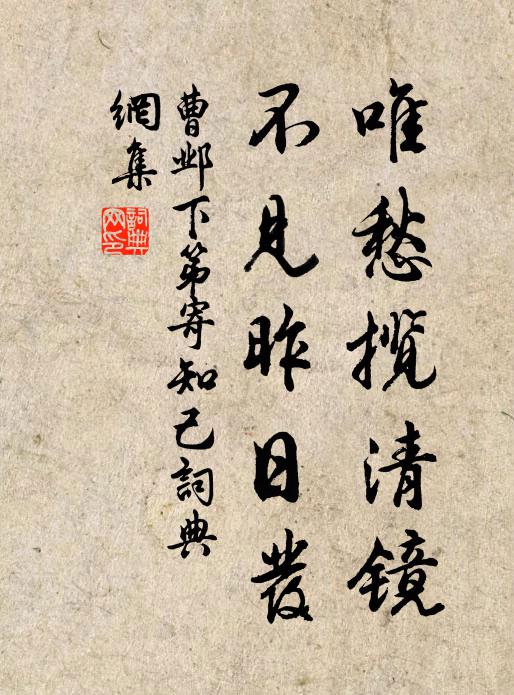 唯愁揽清镜
不见昨日发
曹邺下第寄知己词典
網集
詞典
网印